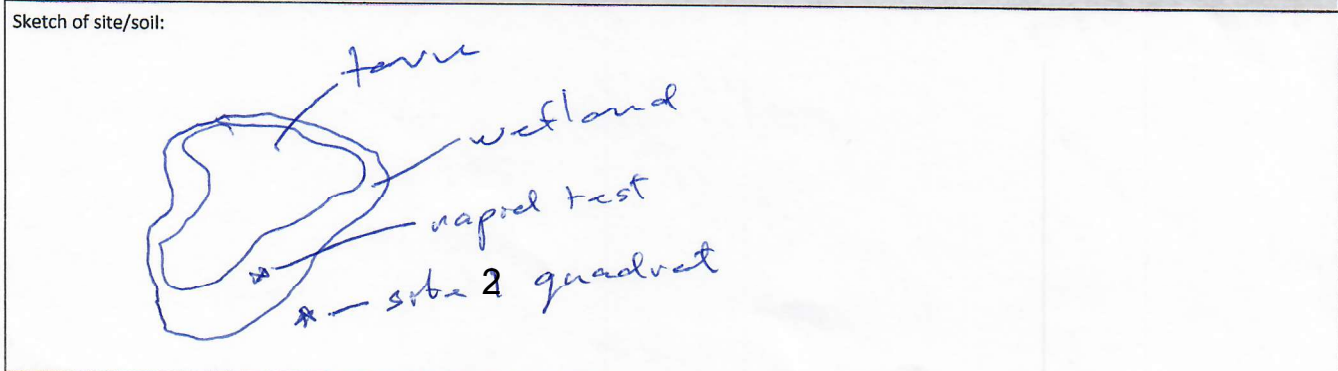 Sketch of site/soil:
tarn
wetland
rapid test
site 2 quadrat